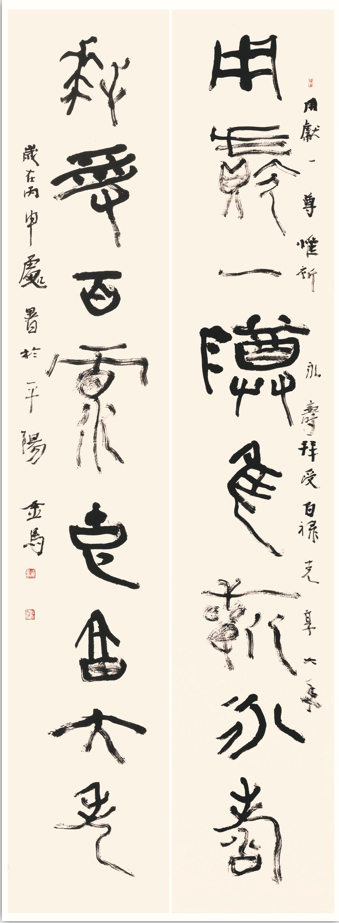 用獻一尊惟祈永壽拜受百禄克享大年
用獻一尊惟祈永壽
拜受百禄克享大年
歲在丙申處暑於平陽金馬